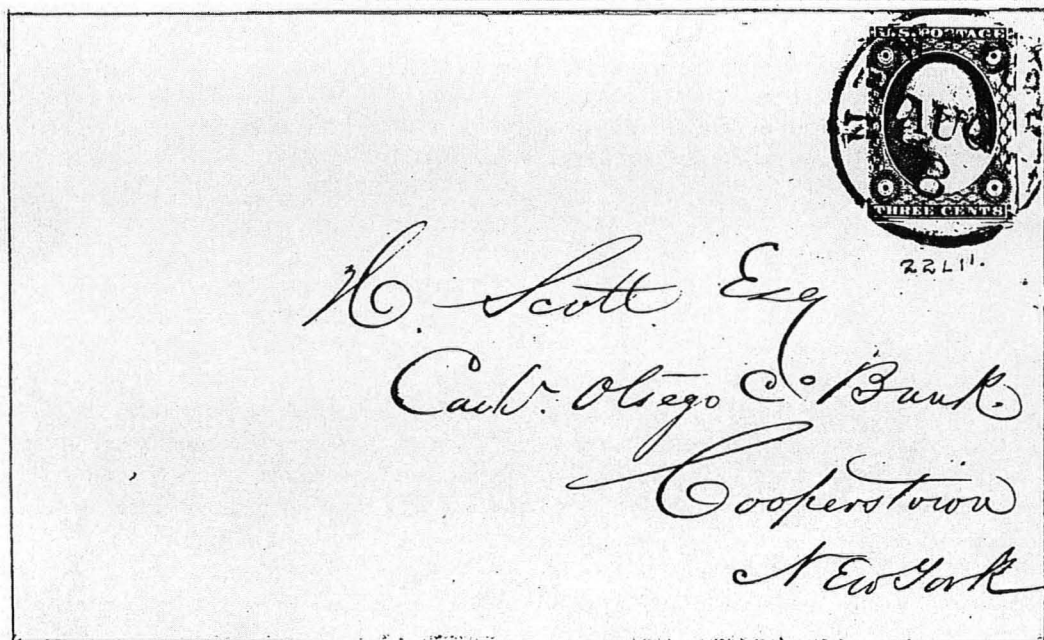 U.S. POSTAGE
AUG
8
THREE CENTS
22L1'.
H. Scott Esq
Cash'. Otsego Co Bank.
Cooperstown
New York